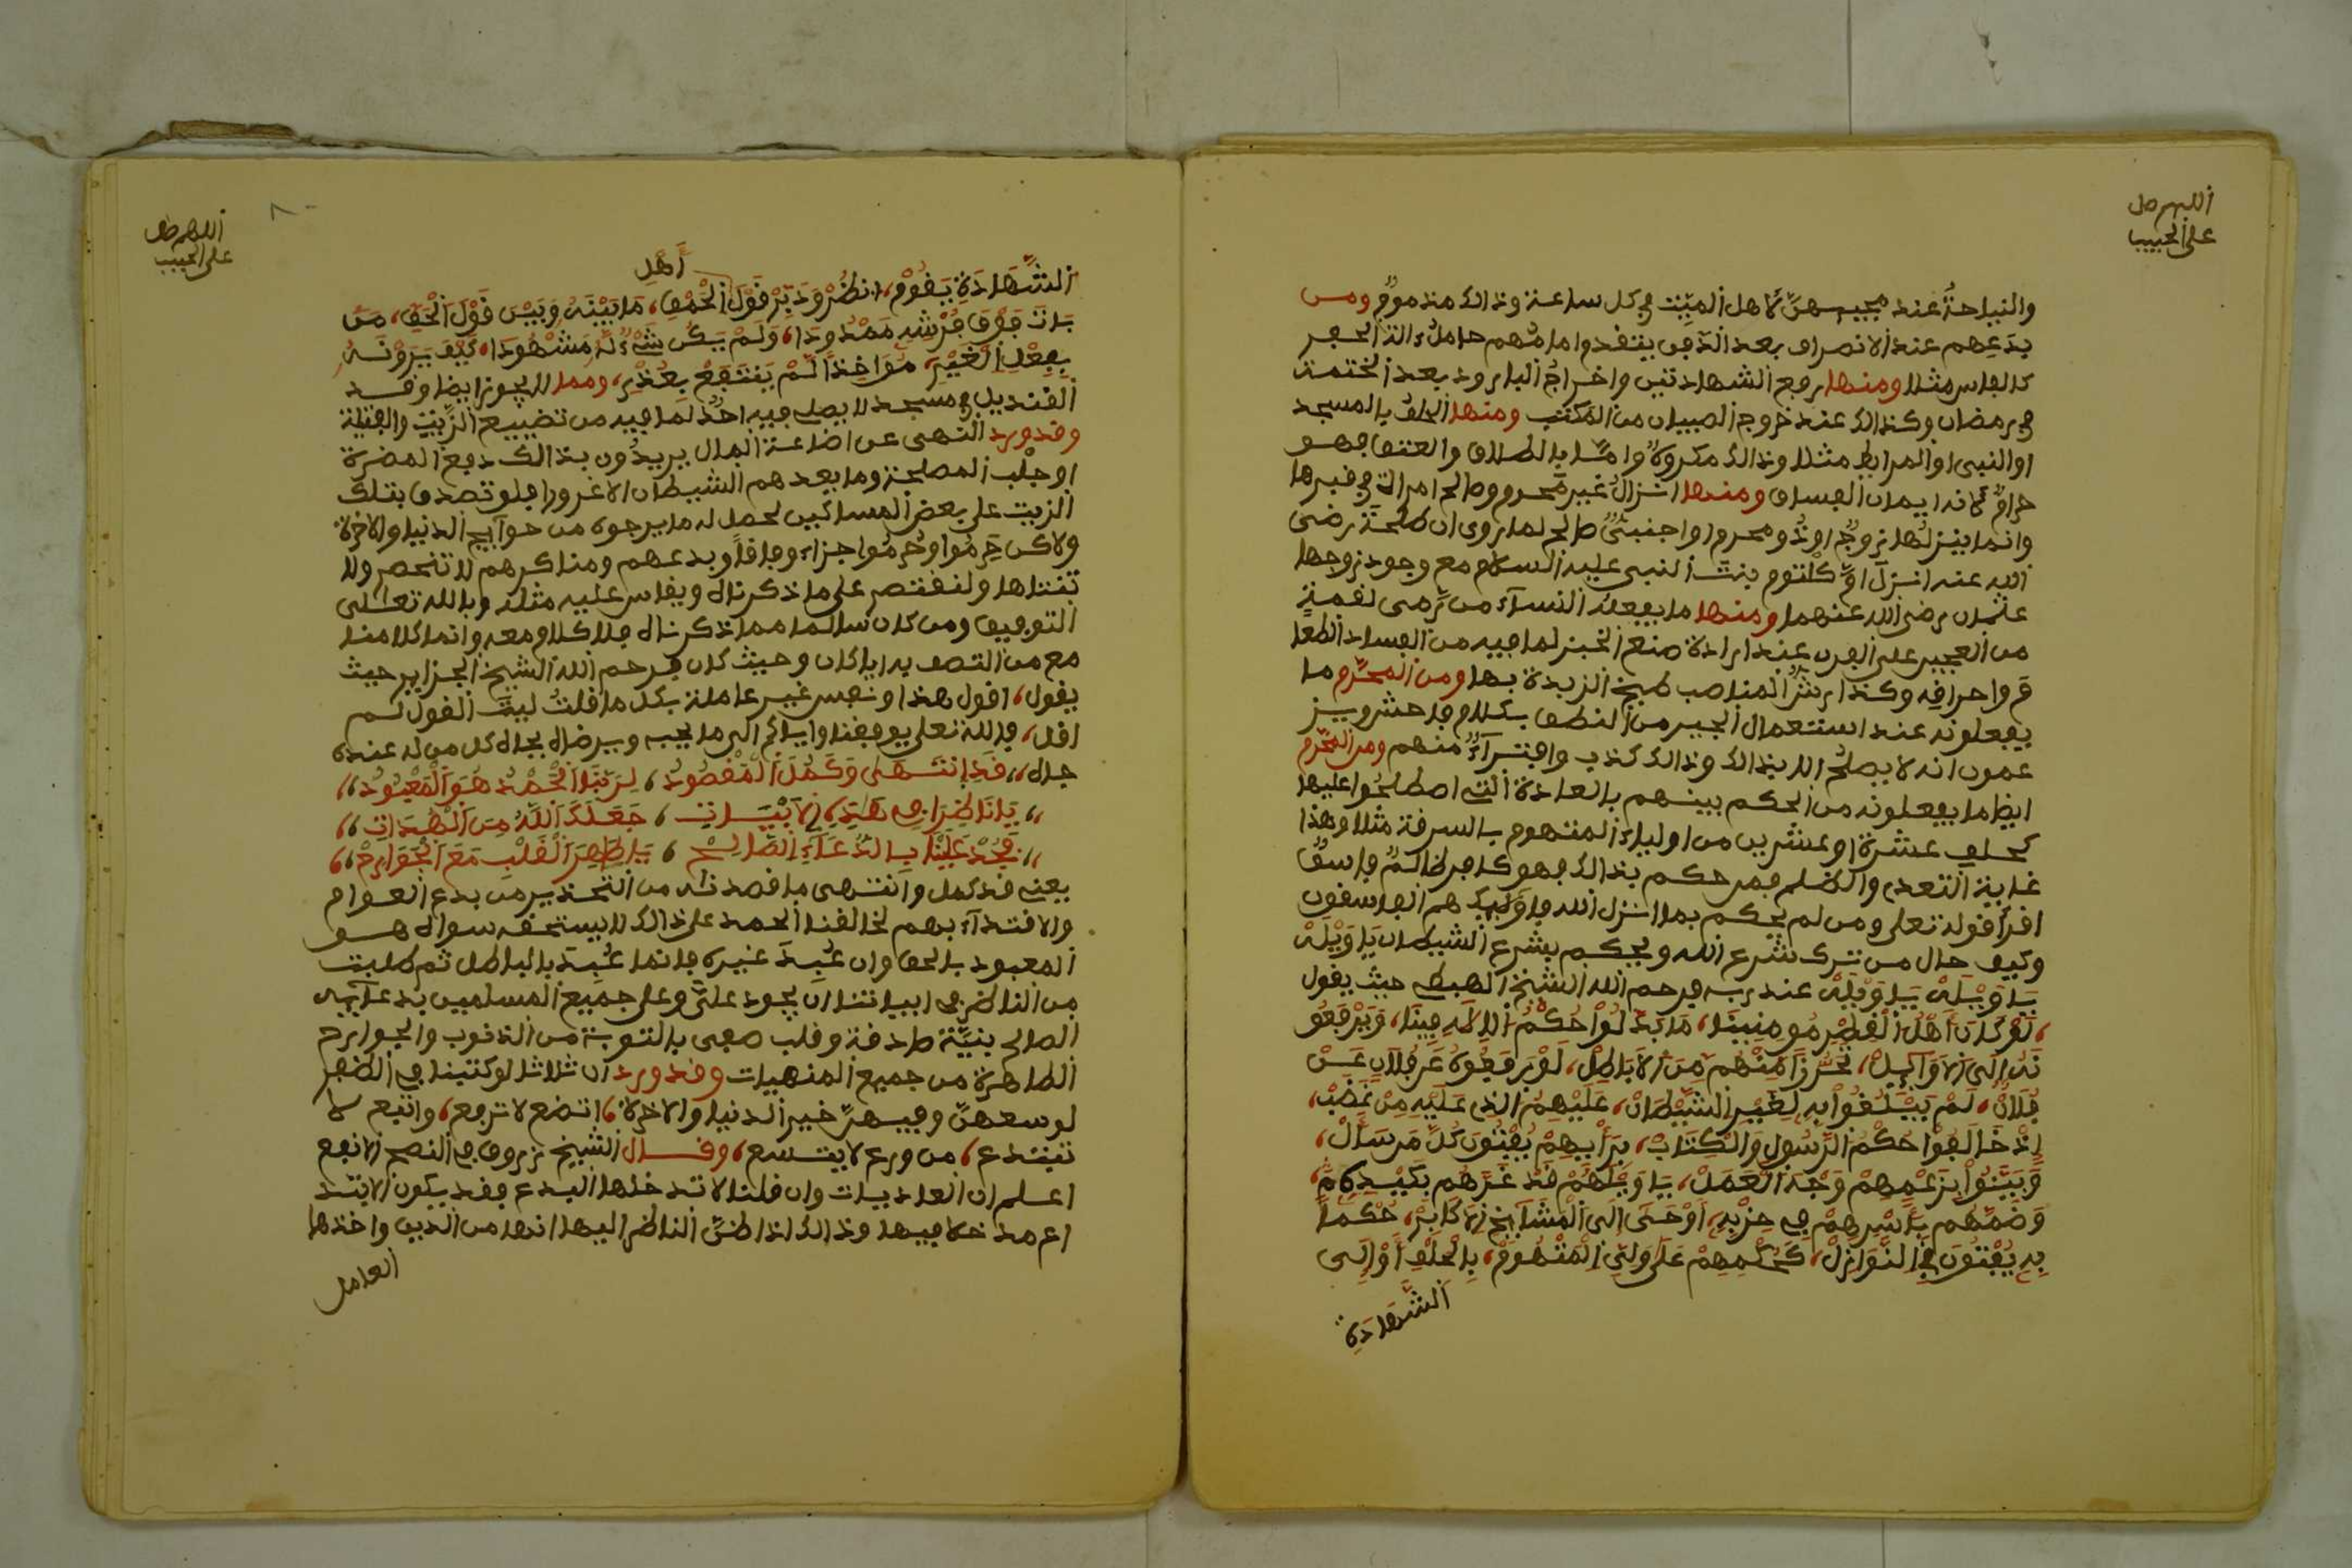 اللهم صل
على الحبيب
والنياحة عند مجيىهن لاهل الميت في كل ساعة وذالك مذموم ومن
بدعهم عند الانصراف بعد الدفن يتفدوا ما منهم حامل ءالة الحفر
كالفاس مثلا ومنها رفع الشهادتين واخراج البارود بعد الختمة
في رمضان وكذالك عند خروج الصبيان من المكتب ومنها الحلف بالمسجد
او النبي او المرابط مثلا وذالك مكروه واما بالطلاق والعتق فهو
حرام لانه ايمان الفساق ومنها انزال غير محرم وصالح امراة في قبرها
وانما ينزلها زوج او ذو محرم او اجنبي صالح لما روي ان طلحة رضي
الله عنه انزل ام كلثوم بنت النبي عليه السلام مع وجود زوجها
عثمان رضي الله عنهما ومنها ما يفعله النساء من رمي لقمة
من العجين على الفرن عند ارادة صنع الخبز لما فيه من افساد الطعام
واحراقه وكذا رش المناصب طبخ الزبدة بها ومن المحرم ما
يفعلونه عند استعمال الجير من النطق بكلام فاحش ويز
عمون انه لا يصلح الا بذالك وذالك كذب وافتراء منهم ومن المحرم
ايضا ما يفعلونه من الحكم بينهم بالعادة التي اصطلحوا عليها
كحلف عشرة او عشرين من اولياء المتهوم بالسرقة مثلا وهذا
غاية التعدي والظلم فمن حكم بذالك فهو كافر ظالم فاسق
اقرا قوله تعلى ومن لم يحكم بما انزل الله فاوليك هم الفاسقون
وكيف حال من ترك شرع الله ويحكم بشرع الشيطان يا ويله
يا ويله يا ويله عند ربه فرحم الله الشيخ الهبطي حيث يقول
لو كان اهل القطر مومنينا، ما بدلوا حكم الاله فينا، ويرفعو
نه الى الاوايل، تحرزا منهم من الاباطل، لو يرفعوه عن فلان عن
فلان، لم يبلغوا به لغير الشيطان، عليهم الذي عليه من غضب،
اذ خالفوا حكم الرسول والكتاب، برايهم يفتون كل من سال،
وبينوا بزعمهم وجه العمل، يا ويلهم قد غرهم بكيده،
وضمهم باسرهم في حزبه، اوحى الى المشايخ الاكابر، حكما
به يفتون في النوازل، كحكمهم على ولي المتهوم، بالحلف او الى
الشهادة
اللهم صل
على الحبيب
٨٠
أهل
الشهادة يقوم، انظر ودبر قول الحمق، ما بينه وبين قول الحق، من
بات فوق فرشه ممدودا، ولم يكن شيء له مشهودا، كيف يرونه
بفعل الغير، مواخذا لم ينتفع بعذر، ومما لا يجوز ايضا وقد
القنديل في مسجد لا يصلي فيه احد لما فيه من تضييع الزيت والفتيلة
وقد ورد النهى عن اضاعة المال يريدون بذالك دفع المضرة
او جلب المصلحة وما يعدهم الشيطان الا غرورا فلو تصدق بتلك
الزيت على بعض المساكين لحصل له ما يرجوه من حوايج الدنيا والاخرة
ولاكن حرموا وحرموا جزاء وفاقا وبدعهم ومناكرهم لا تنحصر ولا
تتناها ولنقتصر على ما ذكرناه ويقاس عليه مثله وبالله تعلى
التوفيق ومن كان سالما مما ذكرناه فلا كلام معه وانما كلامنا
مع من اتصف به ايا كان وحيث كان فرحم الله الشيخ الجزاير حيث
يقول، اقول هذا ونفس غير عاملة بكل ما قلت ليت القول لم
اقل، فالله تعلى يوفقنا واياكم الى ما يحبه ويرضاه بجاه كل من له عنده
جاه،، قد انتهى وكمل المقصود، لربنا الحمد هو المعبود،،
،، يا ناظرا في هذه الابيات، جعلك الله من الهدات،،
،، فجد علينا بالدعاء الصالح، يا طاهر القلب مع الجوارح،،
يعني قد كمل وانتهى ما قصدناه من التحذير من بدع العوام
والاقتداء بهم لخالقنا الحمد على ذالك لا يستحقه سواه هو
المعبود بالحق وان عبد غيره فانما عبد بالباطل ثم طلبت
من الناظر في ابياتنا ان يجود علي وعلى جميع المسلمين بدعايه
الصالح بنية صادقة وقلب صفي بالتوبة من الذنوب والجوارح
الطاهرة من جميع المنهيات وقد ورد ان ثلاثا لو كتبنا في الظفر
لوسعهن وفيهن خير الدنيا والاخرة، اتضع لا ترفع، واتبع لا
تبتدع، من ورع لا يتسع، وقال الشيخ زروق في النصح الانفع
اعلم ان العاديات وان قلنا لا تدخلها البدع فقد يكون الابتد
اع مدخلا فيها وذالك اذا ظن الناظر اليها انها من الدين واخذها
العامل